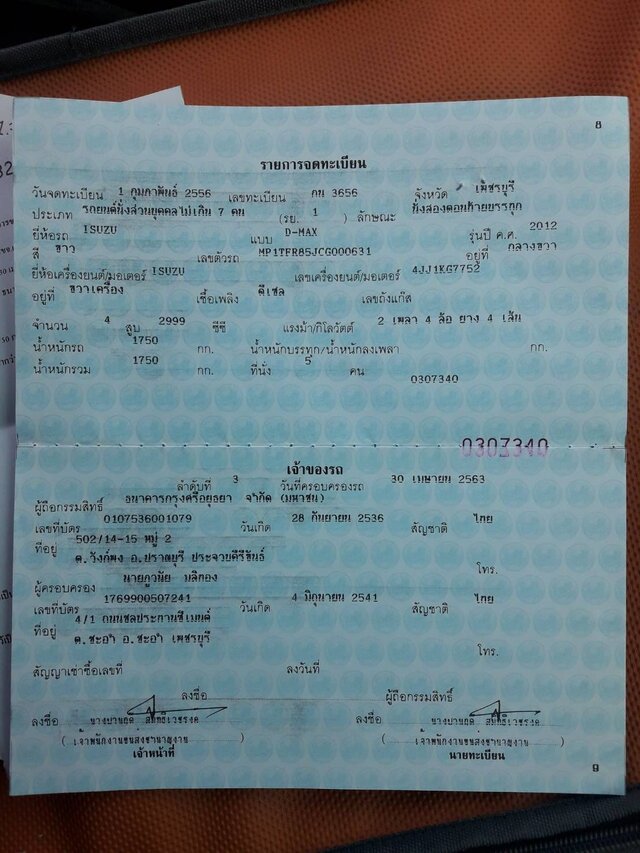 8
รายการจดทะเบียน
วันจดทะเบียน 1 กุมภาพันธ์ 2556 เลขทะเบียน กน 3656 จังหวัด เพ็ชรบุรี
ประเภท รถยนต์นั่งส่วนบุคคลไม่เกิน 7 คน (รย. 1 ) ลักษณะ นั่งสองตอนท้ายบรรทุก
ยี่ห้อรถ ISUZU แบบ D-MAX รุ่นปี ค.ศ. 2012
สี ขาว เลขตัวรถ MP1TFR85JCG000631 อยู่ที่ กลางขวา
ยี่ห้อเครื่องยนต์/มอเตอร์ ISUZU เลขเครื่องยนต์/มอเตอร์ 4JJ1KG7752
อยู่ที่ ขวาเครื่อง เชื้อเพลิง ดีเซล เลขถังแก๊ส
จำนวน 4 สูบ 2999 ซีซี แรงม้า/กิโลวัตต์ 2 เพลา 4 ล้อ ยาง 4 เส้น
น้ำหนักรถ 1750 กก. น้ำหนักบรรทุก/น้ำหนักลงเพลา กก.
น้ำหนักรวม 1750 กก. ที่นั่ง 5 คน
0307340
0307340
เจ้าของรถ
ลำดับที่ 3 วันที่ครอบครองรถ 30 เมษายน 2563
ผู้ถือกรรมสิทธิ์ ธนาคารกรุงศรีอยุธยา จำกัด (มหาชน)
เลขที่บัตร 0107536001079 วันเกิด 28 กันยายน 2536 สัญชาติ ไทย
ที่อยู่ 502/14-15 หมู่ 2
ต.วังก์พง อ.ปราณบุรี ประจวบคีรีขันธ์ โทร.
ผู้ครอบครอง นายภูวนัย มลิทอง
เลขที่บัตร 1769900507241 วันเกิด 4 มิถุนายน 2541 สัญชาติ ไทย
ที่อยู่ 4/1 ถนนชลประทานซีเมนต์
ต.ชะอำ อ.ชะอำ เพชรบุรี โทร.
สัญญาเช่าซื้อเลขที่ ลงวันที่
ลงชื่อ ผู้ถือกรรมสิทธิ์
ลงชื่อ ลงชื่อ
(เจ้าพนักงานขนส่งชำนาญงาน) (เจ้าพนักงานขนส่งชำนาญงาน)
เจ้าหน้าที่ นายทะเบียน
9